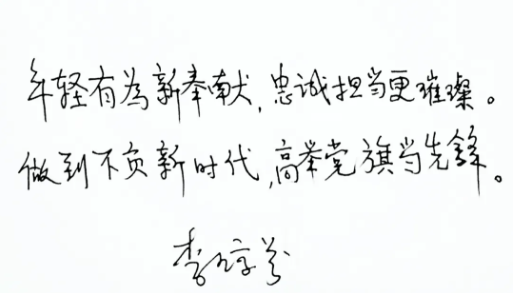 年轻有为新奉献,忠诚担当更璀璨。
做到不负新时代,高举党旗当先锋。
李